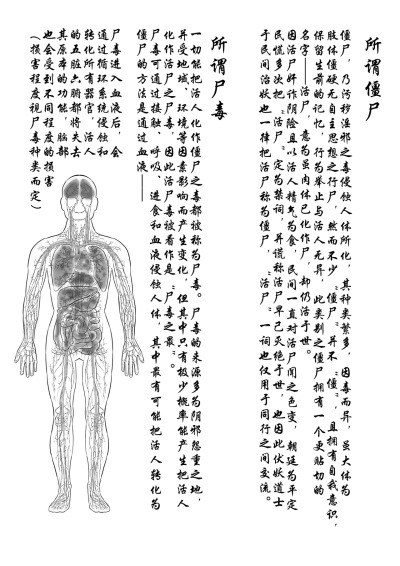 所谓僵尸
僵尸，乃污秽淫邪之毒侵蚀人体所化，其种类繁多，因毒而异，虽大体为
肢体僵硬无自主思想之行尸，然而不少“僵尸”并不“僵”，且拥有自我意识，
保留生前的记忆，行为举止与活人无异，此类别之僵尸拥有一个更贴切的
名字——活尸，意为虽肉体已化作尸，却仍活于世。
因活尸奸诈阴险且以活人精气为食，民间一直对活尸闻之色变，朝廷为平定
民慌多次把“活尸”定为禁词，并谎称活尸早已灭绝于世，也因此伏妖道士
于民间伏妖也一律把活尸称为僵尸，“活尸”一词也仅用于同行之间交流。
所谓尸毒
一切能把活人化作僵尸之毒都被称为尸毒。尸毒的来源多为阴邪怨重之地，
并受地域、环境等因素影响而产生变化，但其中只有极少概率能产生把活人
化作活尸之尸毒，因此活尸毒被看作是“尸毒之最”。
尸毒可通过接触、呼吸、进食和血液侵蚀人体，其中最有可能把活人转化为
僵尸的方法是通过血液——
尸毒进入血液后，会
通过循环系统侵蚀和
转化所有器官，活人
的五脏六腑都将失去
其原本的功能，脑部
也会受到不同程度的损害
（损害程度视尸毒种类而定）